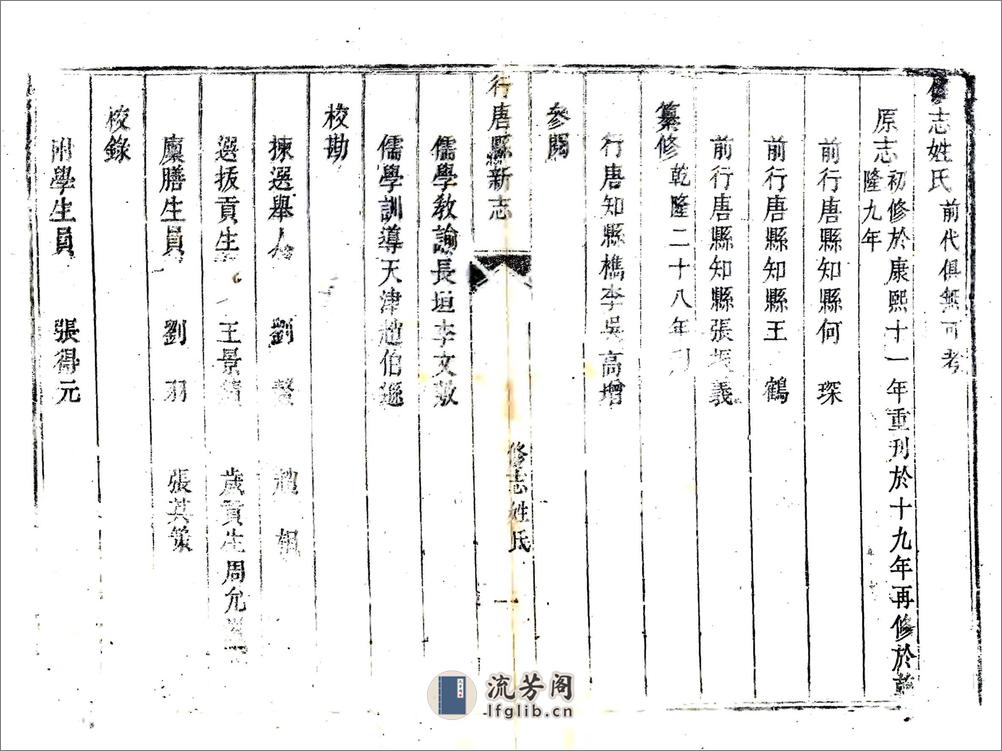 修志姓氏 前代俱無可考
原志 初修於康熙十一年重刊於十九年再修於乾
隆九年
前行唐縣知縣何 琛
前行唐縣知縣王 鶴
前行唐縣知縣張振義
纂修 乾隆二十八年
行唐知縣檇李吳高增
參閱
行唐縣新志
修志姓氏
一
儒學教諭長垣李文
儒學訓導天津趙伯遜
校勘
揀選舉人 劉 趙
選拔貢生 王景 歲貢生周允
廩膳生員 劉 張其
校錄
附學生員 張得元
流芳阁
lfglib.cn